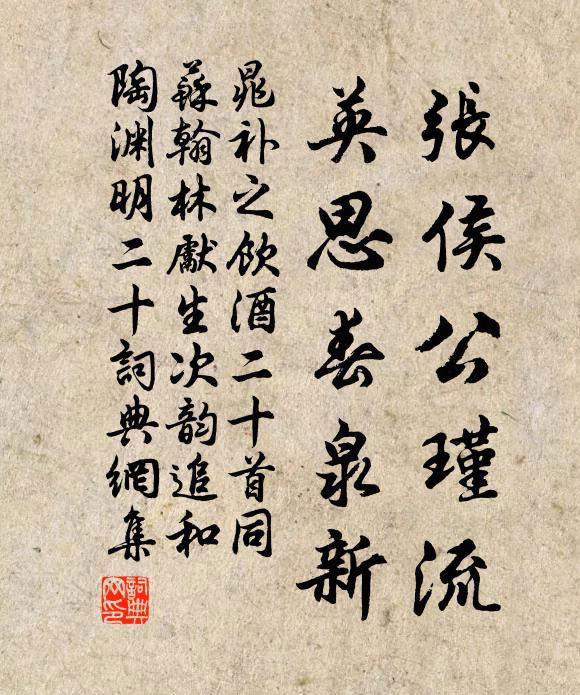 張侯公瑾流
英思春泉新
晁补之飲酒二十首同
蘇翰林獻生次韵追和
陶渊明二十詞典網集
詞典
网印